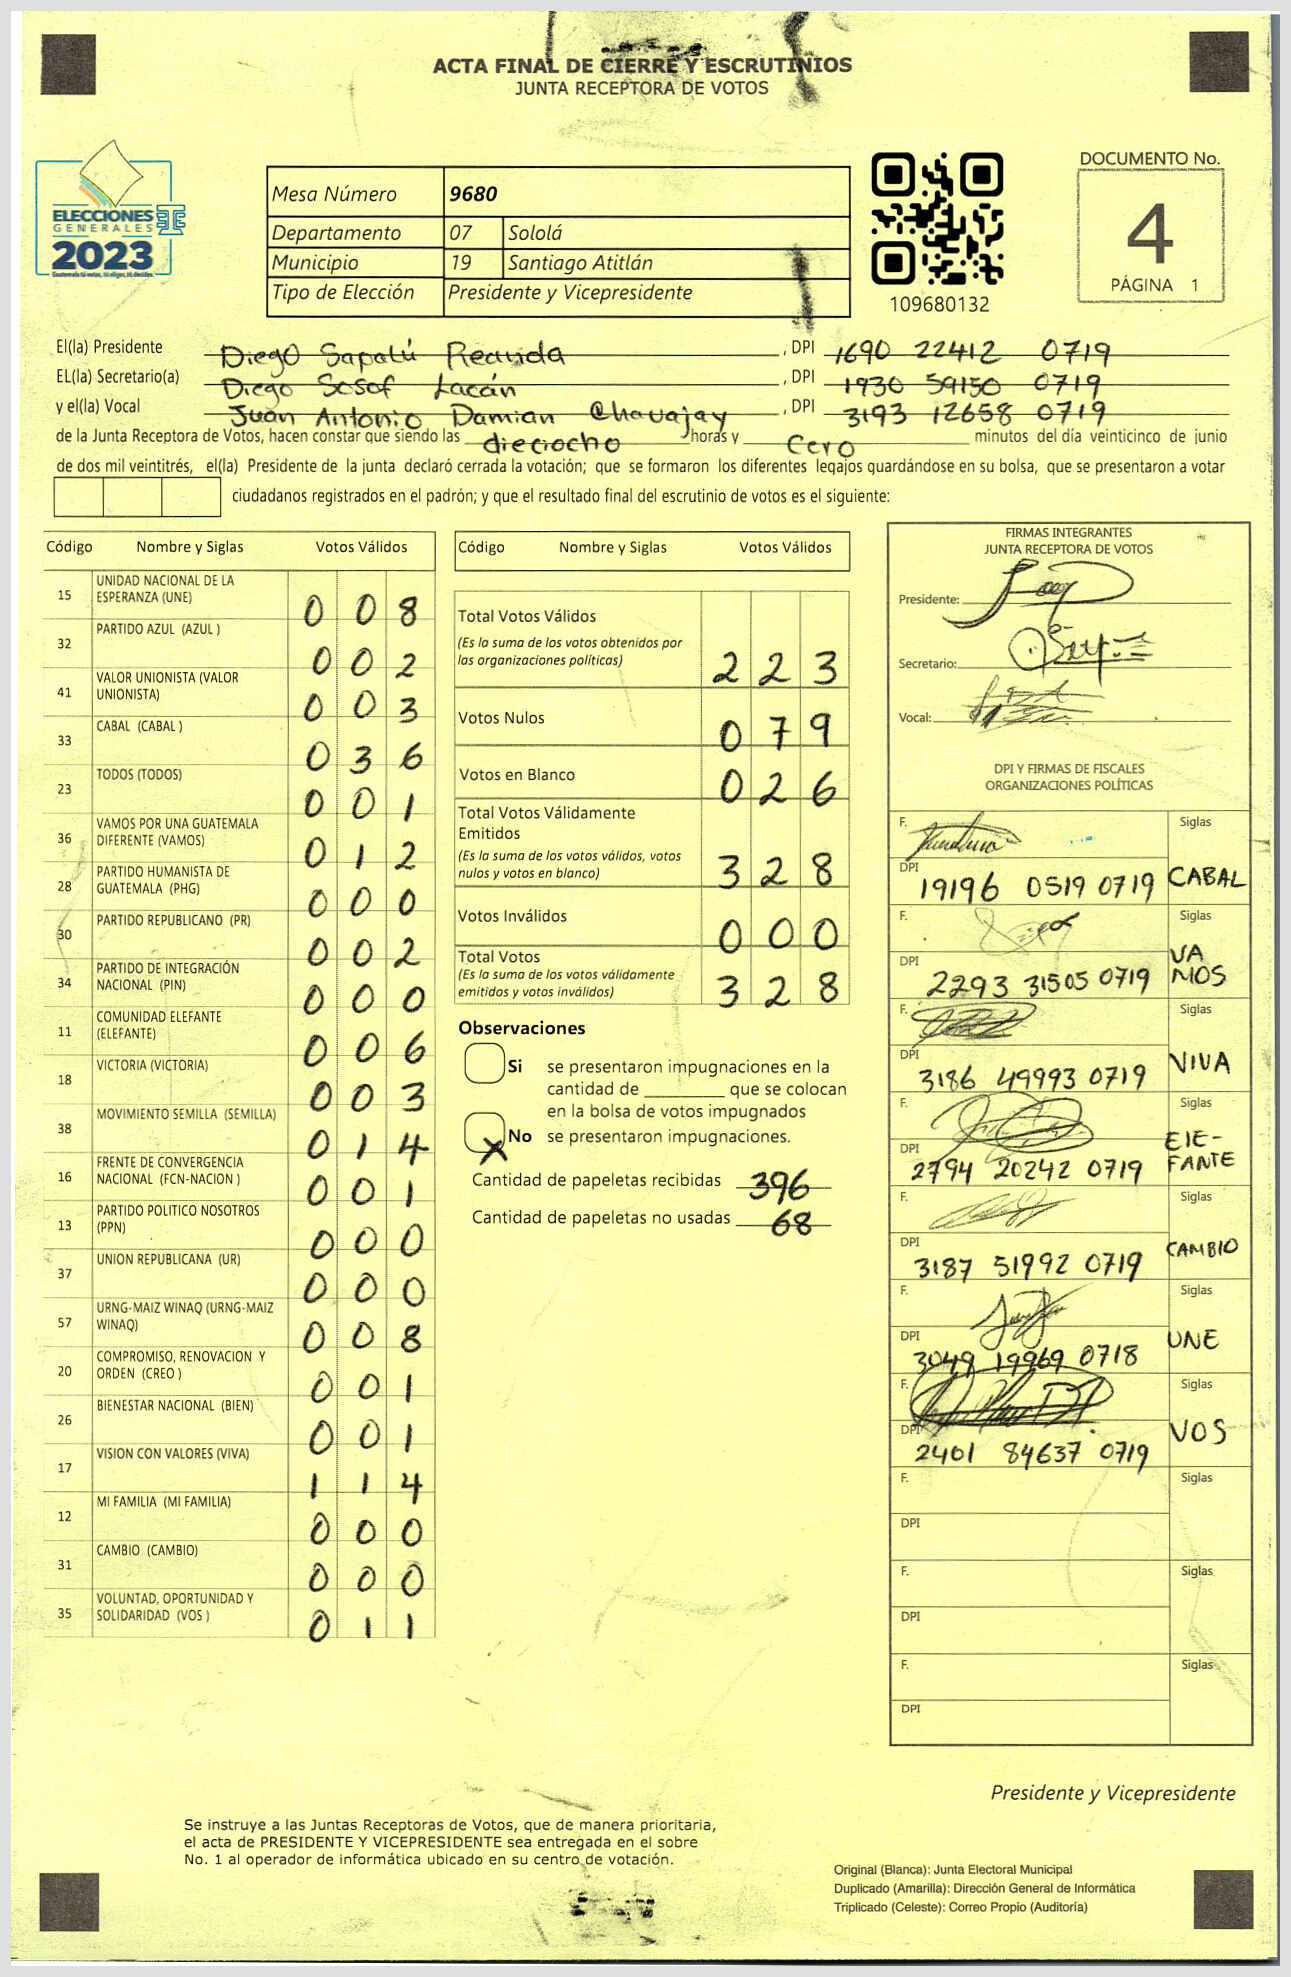 ACTA FINAL DE CIERRE Y ESCRUTINIOS
JUNTA RECEPTORA DE VOTOS
ELECCIONES
GENERALES
2023
Guatemala tú votas, tú eliges, tú decides
Mesa Número 9680
Departamento 07 Sololá
Municipio 19 Santiago Atitlán
Tipo de Elección Presidente y Vicepresidente
109680132
DOCUMENTO No.
4
PÁGINA 1
El(la) Presidente Diego Sapalú , DPI 1690 22412 0719
EL(la) Secretario(a) Diego Sosof Lacán , DPI 1930 59150 0719
y el(la) Vocal Juan Antonio Damian Chavajay , DPI 3193 12658 0719
de la Junta Receptora de Votos, hacen constar que siendo las dieciocho horas y Cero minutos del día veinticinco de junio
de dos mil veintitrés, el(la) Presidente de la junta declaró cerrada la votación; que se formaron los diferentes legajos guardándose en su bolsa, que se presentaron a votar
ciudadanos registrados en el padrón; y que el resultado final del escrutinio de votos es el siguiente:
Código Nombre y Siglas Votos Válidos
15 UNIDAD NACIONAL DE LA
ESPERANZA (UNE) 0 0 8
32 PARTIDO AZUL (AZUL ) 0 0 2
41 VALOR UNIONISTA (VALOR
UNIONISTA) 0 0 3
33 CABAL (CABAL ) 0 3 6
23 TODOS (TODOS) 0 0 1
36 VAMOS POR UNA GUATEMALA
DIFERENTE (VAMOS) 0 1 2
28 PARTIDO HUMANISTA DE
GUATEMALA (PHG) 0 0 0
30 PARTIDO REPUBLICANO (PR) 0 0 2
34 PARTIDO DE INTEGRACIÓN
NACIONAL (PIN) 0 0 0
11 COMUNIDAD ELEFANTE
(ELEFANTE) 0 0 6
18 VICTORIA (VICTORIA) 0 0 3
38 MOVIMIENTO SEMILLA (SEMILLA) 0 1 4
16 FRENTE DE CONVERGENCIA
NACIONAL (FCN-NACION ) 0 0 1
13 PARTIDO POLITICO NOSOTROS
(PPN) 0 0 0
37 UNION REPUBLICANA (UR) 0 0 0
57 URNG-MAIZ WINAQ (URNG-MAIZ
WINAQ) 0 0 8
20 COMPROMISO, RENOVACION Y
ORDEN (CREO ) 0 0 1
26 BIENESTAR NACIONAL (BIEN) 0 0 1
17 VISION CON VALORES (VIVA) 1 1 4
12 MI FAMILIA (MI FAMILIA) 0 0 0
31 CAMBIO (CAMBIO) 0 0 0
35 VOLUNTAD, OPORTUNIDAD Y
SOLIDARIDAD (VOS ) 0 1 1
Código Nombre y Siglas Votos Válidos
Total Votos Válidos
(Es la suma de los votos obtenidos por
las organizaciones políticas) 2 2 3
Votos Nulos 0 7 9
Votos en Blanco 0 2 6
Total Votos Válidamente
Emitidos
(Es la suma de los votos válidos, votos
nulos y votos en blanco) 3 2 8
Votos Inválidos 0 0 0
Total Votos
(Es la suma de los votos válidamente
emitidos y votos inválidos) 3 2 8
Observaciones
Si se presentaron impugnaciones en la
cantidad de ________ que se colocan
en la bolsa de votos impugnados
X No se presentaron impugnaciones.
Cantidad de papeletas recibidas 396
Cantidad de papeletas no usadas 68
FIRMAS INTEGRANTES
JUNTA RECEPTORA DE VOTOS
Presidente:
Secretario:
Vocal:
DPI Y FIRMAS DE FISCALES
ORGANIZACIONES POLÍTICAS
F. Siglas
DPI 19196 0519 0719 CABAL
F. Siglas
VA
DPI 2293 31505 0719 MOS
F. Siglas
DPI 3186 49993 0719 VIVA
F. Siglas
ElE-
DPI 2794 20242 0719 FANTE
F. Siglas
DPI 3187 51992 0719 CAMBIO
F. Siglas
DPI 3049 19969 0718 UNE
F. Siglas
DPI 2401 84637 0719 VOS
F. Siglas
DPI
F. Siglas
DPI
F. Siglas
DPI
Presidente y Vicepresidente
Se instruye a las Juntas Receptoras de Votos, que de manera prioritaria,
el acta de PRESIDENTE Y VICEPRESIDENTE sea entregada en el sobre
No. 1 al operador de informática ubicado en su centro de votación.
Original (Blanca): Junta Electoral Municipal
Duplicado (Amarilla): Dirección General de Informática
Triplicado (Celeste): Correo Propio (Auditoría)